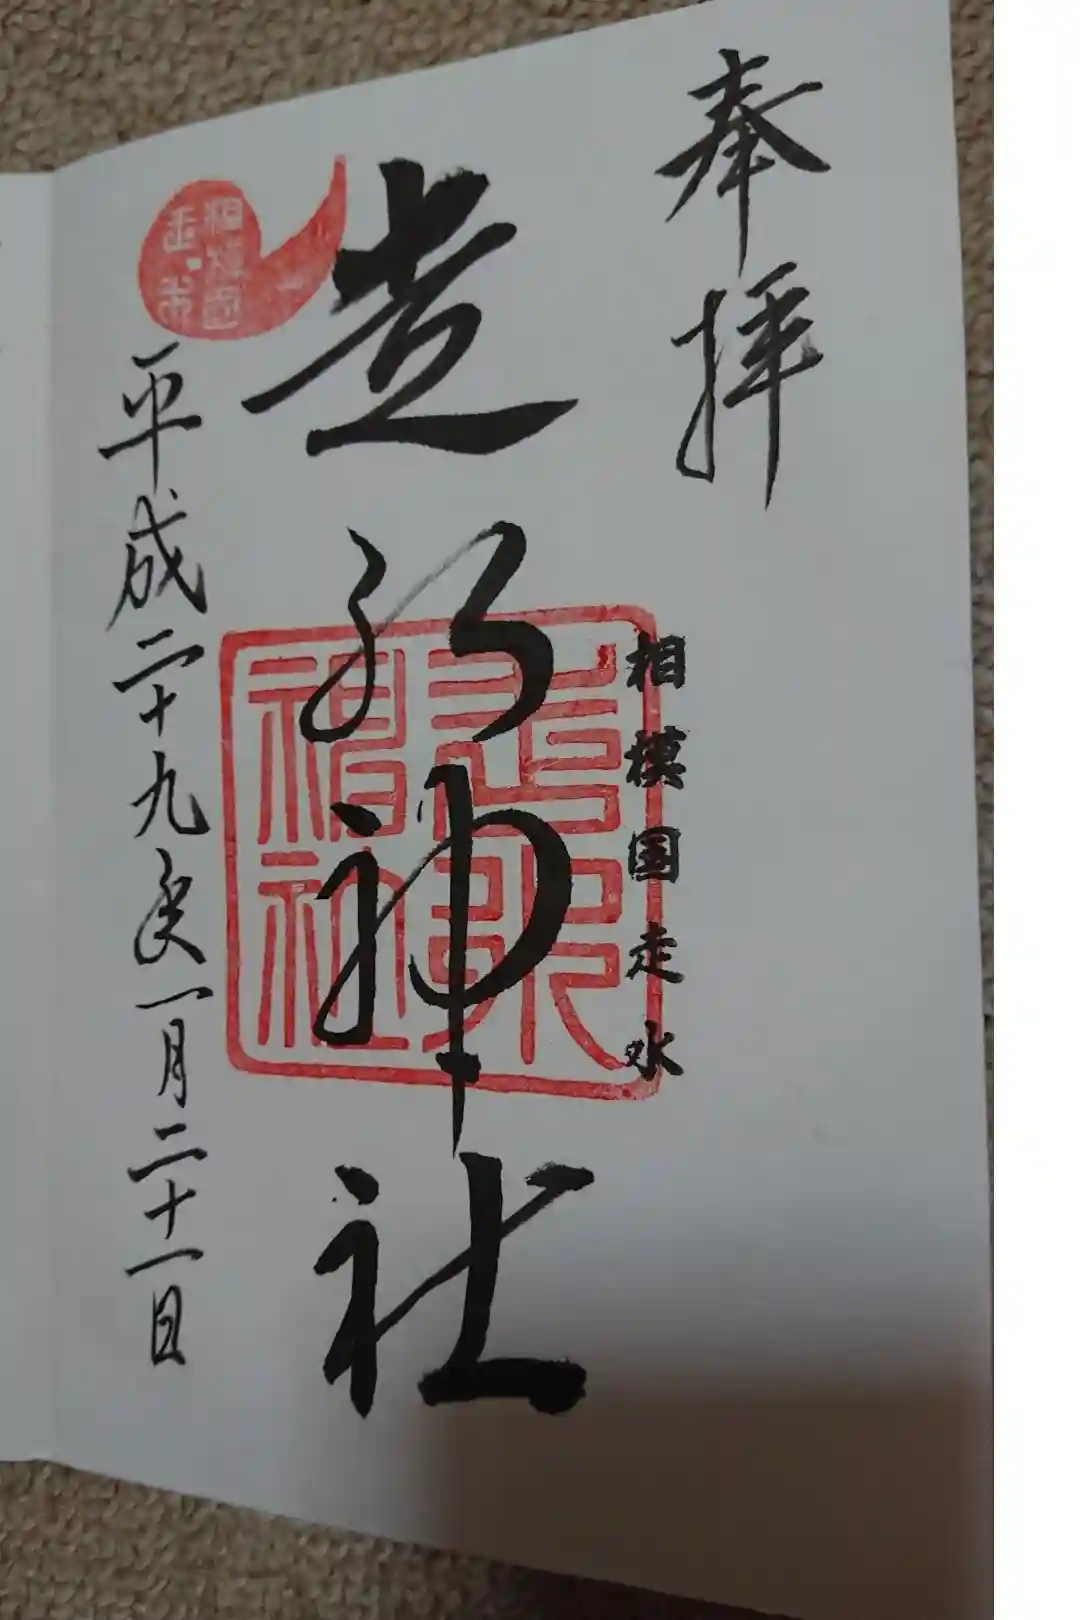 奉拝
相模国走水
走水神社
走水神社
相模国
走水
平成二十九年一月二十一日